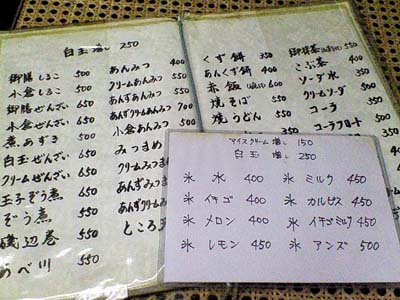 白玉増し 250
御膳しるこ 500
小倉しるこ 500
御膳ぜんざい 650
小倉ぜんざい 650
煮あずき 500
白玉ぜんざい 650
クリームぜんざい 650
玉子ぞう煮 650
ぞう煮 650
磯辺巻 650
あべ川 550
あんみつ 400
クリームあんみつ 550
あんずあんみつ 550
あんずクリームあんみつ 700
小倉あんみつ 500
みつまめ
クリームみつま
あんずみつま
あんずクリームみつ
ところ天
くず餅 350
あんくず餅 400
赤飯 600
焼そば 550
焼うどん 550
御抹茶 550
こぶ茶 350
ソーダ水 350
クリームソーダ
コーラ
コーラフロート
アイスクリーム増し 150
白玉増し 250
氷 水 400
氷 イチゴ 400
氷 メロン 400
氷 レモン 450
氷 ミルク 450
氷 カルピス 450
氷 イチゴミルク 450
氷 アンズ 500